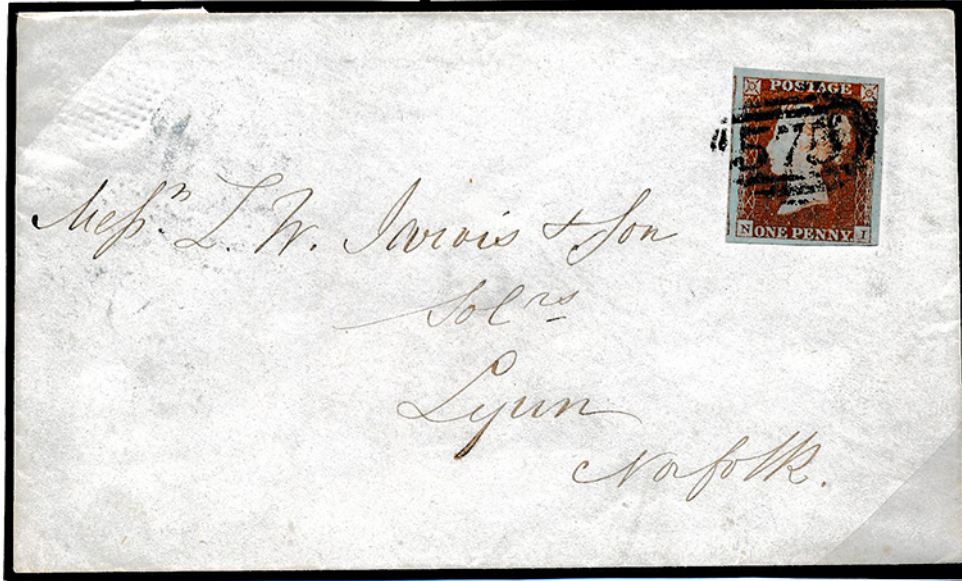 POSTAGE
575
N ONE PENNY. I
Messrs. L. W. Jarvis & Son
Solrs
Lynn
Norfolk.